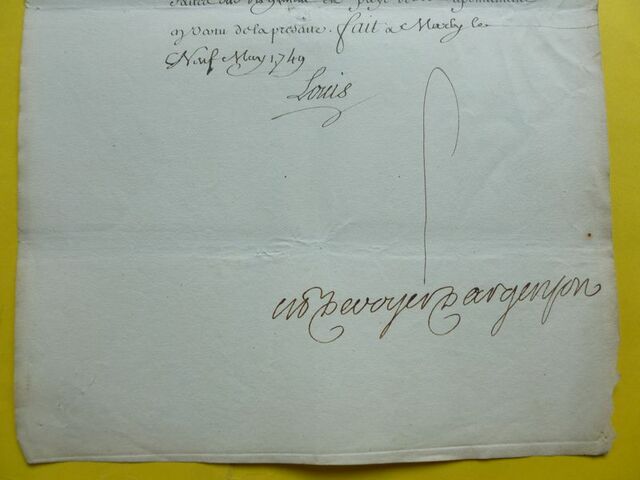 en paye de
en vertu de la presente. fait a Marly le
Neuf May 1749
Louis
M P De voyer D argenson